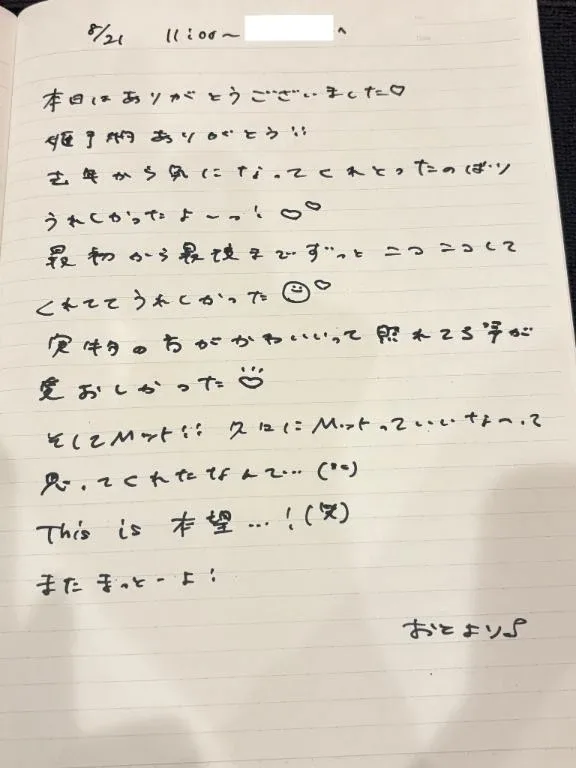 8/21 11:00〜 へ
本日はありがとうございました♡
姫予約ありがとう!!
去年から気になってくれとったのばり
うれしかったよ〜っ! ♡♡
最初から最後までずっとニコニコして
くれててうれしかった ☺♡
実物の方がかわいいって照れてる君が
愛おしかった
そしてMット!! 久々にMットっていいなぁ〜って
思ってくれたなんて…
This is 本望…!(笑)
またまっと〜よ!
おとより♪